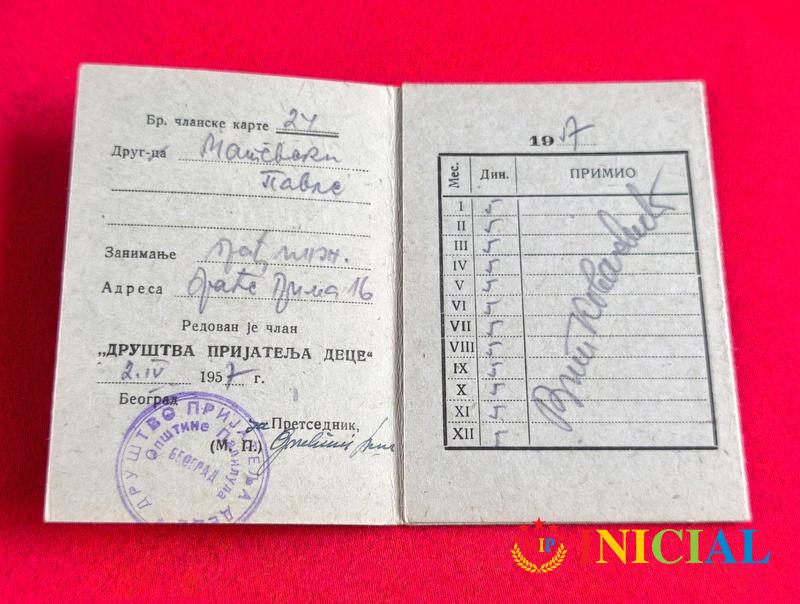 Бр. чланске карте 24
Друг-ца Матевски
Павле
Занимање грађ. инж.
Адреса Браће Грима 16
Редован је члан
„ДРУШТВА ПРИЈАТЕЉА ДЕЦЕ“
2. IV 1957 г.
Београд
за Претседник,
(М. П.)
ДРУШТВО ПРИЈАТЕЉА ДЕЦЕ
ОПШТИНЕ Палилула
БЕОГРАД
1957
Мес. Дин. ПРИМИО
I 5
II 5
III 5
IV 5
V 5
VI 5
VII 5
VIII 5
IX 5
X 5
XI 5
XII 5
IP INICIAL